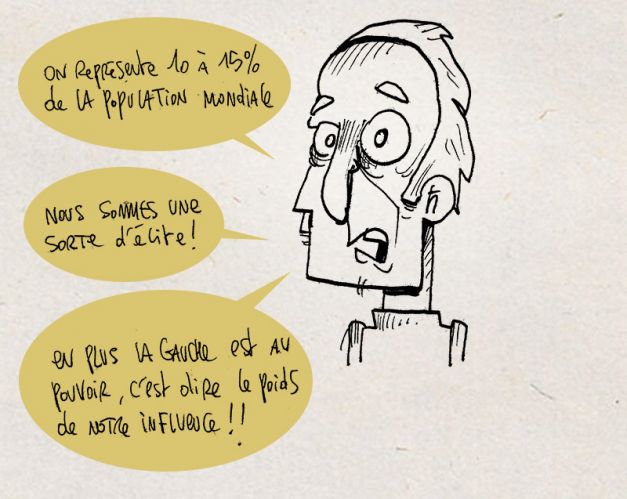 ON REPRÉSENTE 10 à 15%
de LA POPULATION MONDIALE
NOUS SOMMES UNE
SORTE d'élite!
EN PLUS LA GAUCHE est AU
POUVOIR, c'est dire le poids
de NOTRE INFLUENCE!!